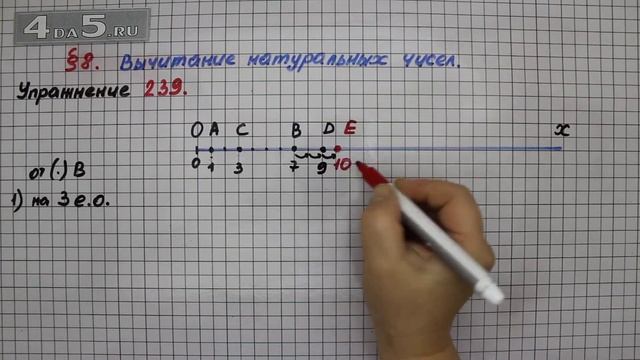 4DA5.RU
§8. Вычитание натуральных чисел.
Упражнение 239.
O A C B D E x
0 1 3 7 9 10
от (·) B
1) на 3 е.о.